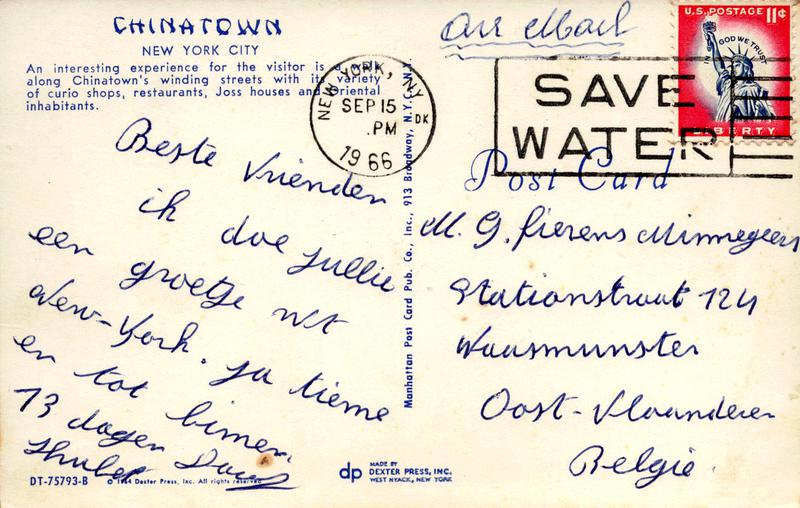 CHINATOWN
NEW YORK CITY
An interesting experience for the visitor is a walk
along Chinatown's winding streets with its variety
of curio shops, restaurants, Joss houses and Oriental
inhabitants.
Beste Vrienden
ik doe jullie
een groetje uit
New-York.
en tot binnen
13 dagen
DT-75793-B
© 1964 Dexter Press, Inc. All rights reserved
Manhattan Post Card Pub. Co., Inc., 913 Broadway, N.Y., N.Y.
dp
MADE BY
DEXTER PRESS, INC.
WEST NYACK, NEW YORK
NEW YORK, NY
SEP 15
PM
1966
DK
Air Mail
U.S. POSTAGE 11¢
IN GOD WE TRUST
LIBERTY
SAVE
WATER
Post Card
M. G. fierens Minnegeers
Stationstraat 124
Waasmunster
Oost-Vlaanderen
Belgie.